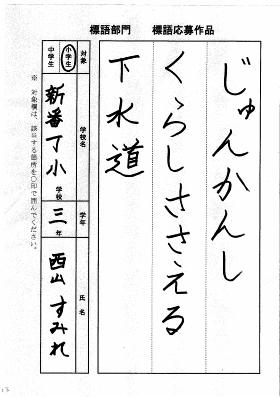 標語部門　標語応募作品
じゅんかんし
くらしささえる
下水道
対象
小学生
中学生
学校名
新番丁小
学校
学年
三
年
氏名
西山すみれ
※ 対象欄は、該当する箇所を○印で囲んでください。